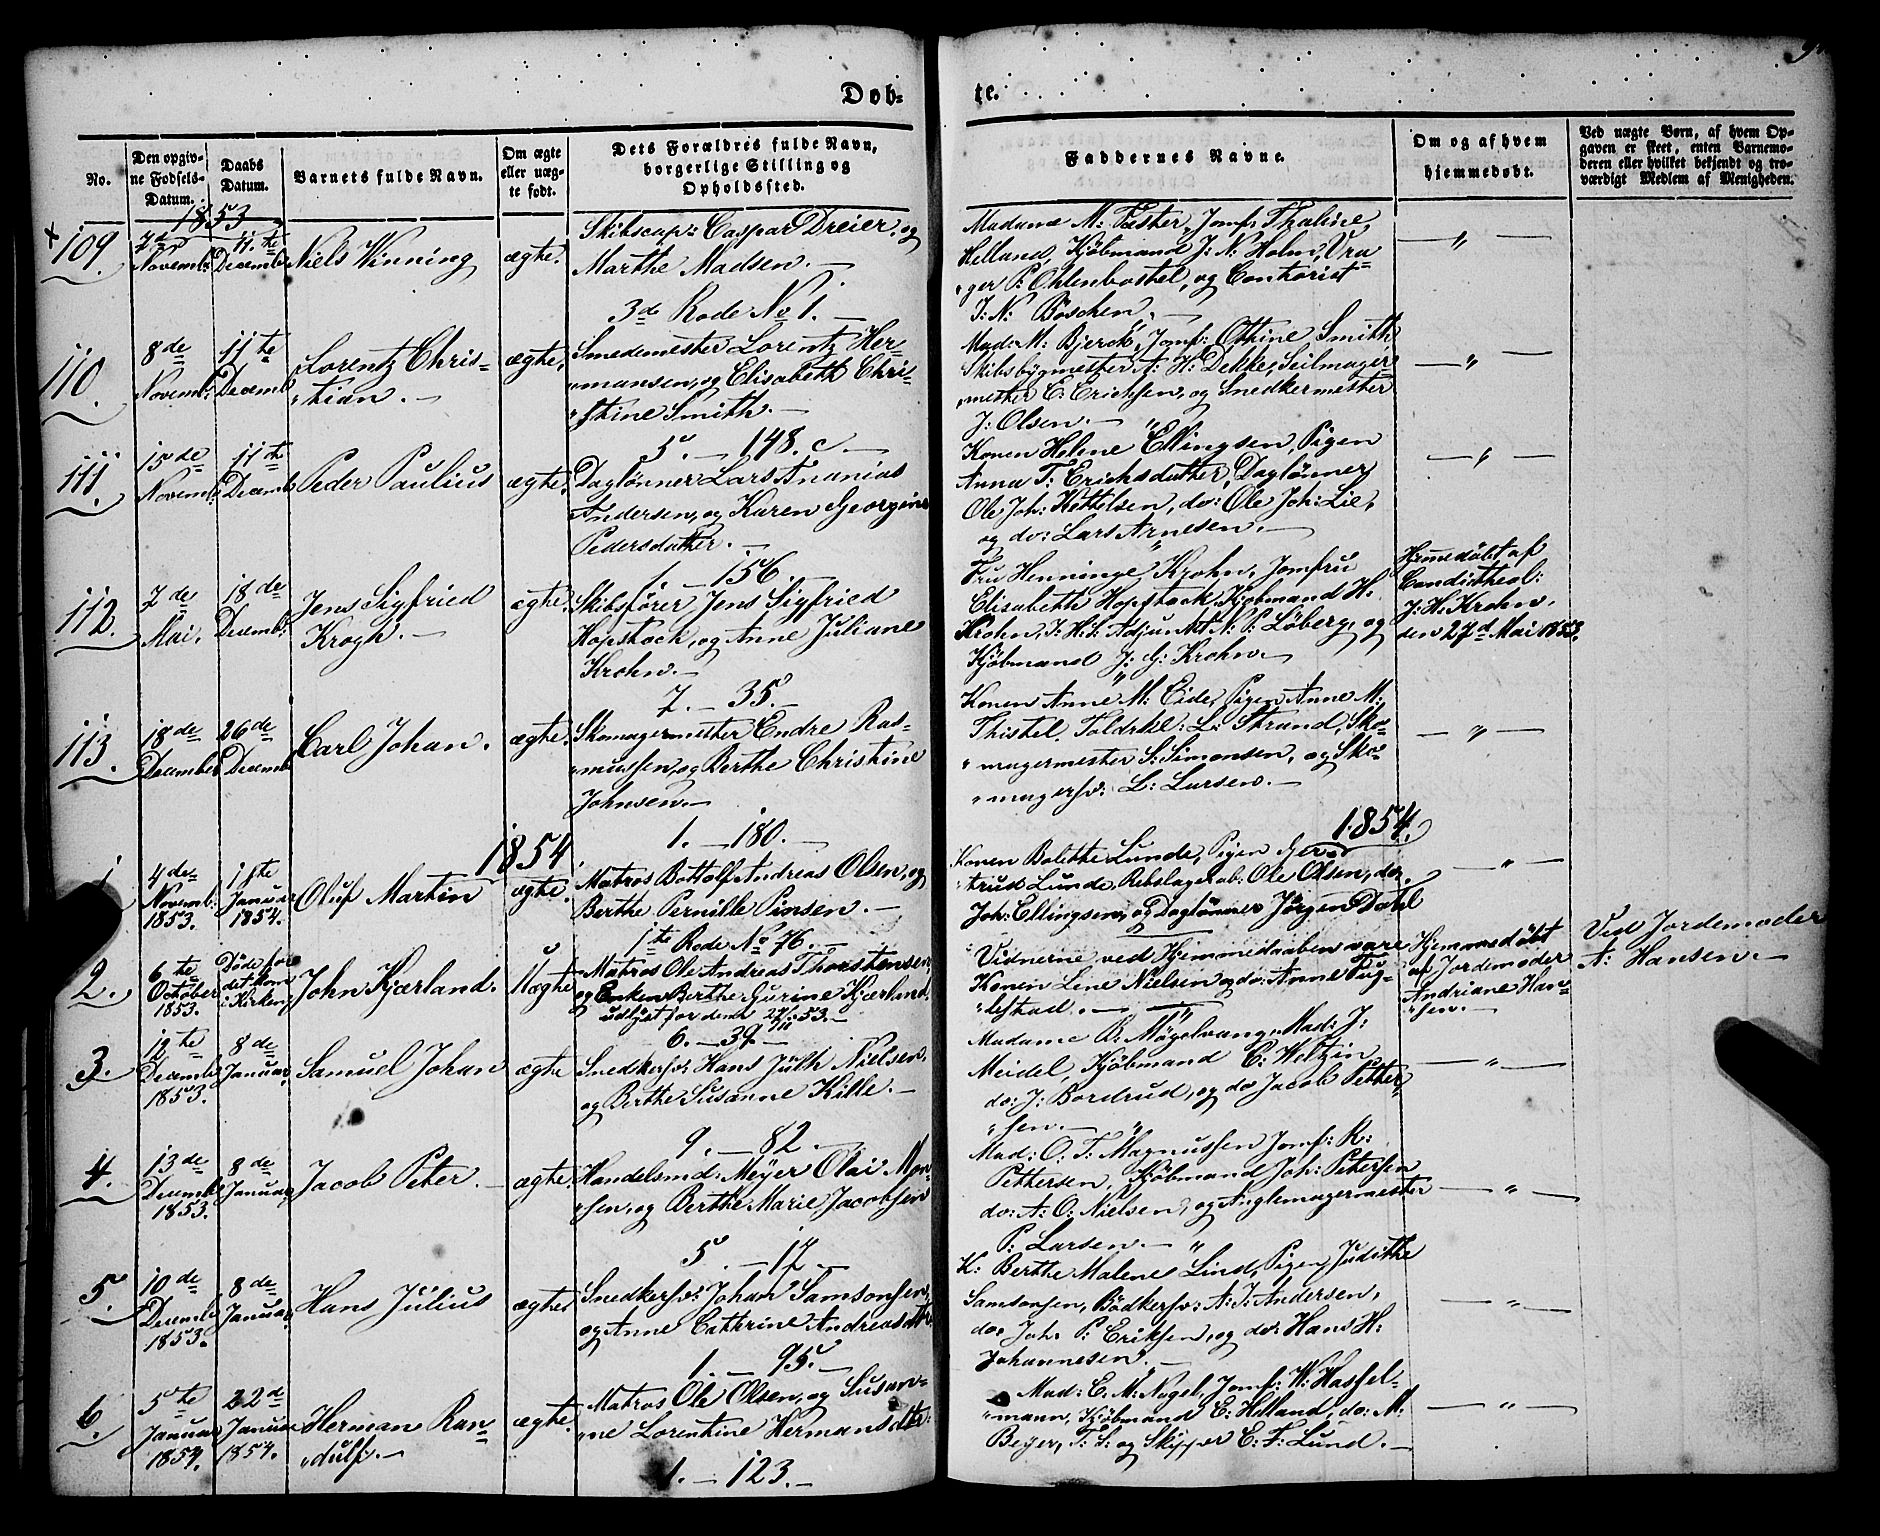 Døb-
te.
No.
Den opgiv-
ne Fødsels-
Datum.
Daabs
Datum.
Barnets fulde Navn.
Om ægte
eller uæg-
te født.
Dets Forældres fulde Navn,
borgerlige Stilling og
Opholdssted.
Faddernes Navne.
Om og af hvem
hjemmedøbt.
Ved uægte Børn, af hvem Op-
gaven er skeet, enten Barnemo-
deren eller hvilket bekjendt og tro-
værdigt Medlem af Menigheden.
1853
109.
7de
Novemb:
11te
Decemb
Niels Winning
ægte.
Skibscap: Caspar Dreier, og
Marthe Madsen. —
3de Rode No 1. —
Madame M: Fæster, Jomf. Thaline
Helland, Kjöbmand J: N: Holm, Vra-
ger P: Ohlenbostel, og Contorist
J: N: Böschen. —
— " —
110.
8de
Novemb:
11te
Decemb
Lorentz Chris-
tian. —
ægte.
Smedemester Lorentz Her-
mansen, og Elisabeth Chri-
stine Smith. —
5. — 148. c. —
Mad: M: Bjerck, Jomf: Othine Smith
Skibsbygmester A: H: Dekke, Seilmager-
mester E: Erichsen, og Snedkermester
J: Olsen. —
— " —
111.
15de
Novemb:
11te
Decemb
Peder Paulius
ægte.
Daglönner Lars Ananias
Andersen, og Karen Georgine
Pedersdatter. —
1. — 156. —
Konen Helene Ellingsen, Pigen
Anna T: Erichsdatter, Daglönner
Ole Joh: Kettelsen, do: Ole Joh: Lie,
og do: Lars Arnesen. —
— " —
112.
7de
Mai.
18de
Decemb:
Jens Sigfried
Krogh. —
ægte.
Skibsförer Jens Sigfried
Hopstock, og Anne Juliane
Krohn. —
7. — 35. —
Fru Henninge Krohn, Jomfru
Elisabeth Hopstock, Kjöbmand H:
Krohn, J: H: S: Adjunkt N: P: Löberg, og
Kjöbmand J: G: Krohn. —
Hjemmedöbt af
Cand: theol:
J: H: Krohn,
den 27d Mai 1853.
113.
18de
December
26de
Decemb
Carl Johan.
ægte.
Skomagermester Endre Ras-
mussen, og Berthe Christine
Johnsen. —
1. — 180. —
Konen Anne M: Eide, Pigen Anne M:
Thistel, L: Strand, Sko-
magermester S: Simonsen, og Sko-
magersv: L: Larsen. —
— " —
1854
1854.
1
4de
Novemb:
1853.
11te
Januar
1854.
Oluf Martin
ægte.
Matros Bottolf Andreas Olsen, og
Berthe Pernille Pinsen. —
1te Rode No 76. —
Konen Bolette Lunde, Pigen Ger-
trud Lunde, Rebslagerab: Ole Olsen, do.
Joh: Ellingsen, og Daglönner Jörgen Dahl
— " —
2.
6te
October
1853.
Döde för
det kom
i Kirken.
John Kjærland.
Uægte
Matros Ole Andreas Thorstensen,
og Enken Berthe Gurine Kjærland,
udlyst for dem 27/11 53. —
6. — 39 —
Vidnerne ved Hjemmedaaben vare
Konen Lene Nielsen og do: Anne Tug-
destad. —
Hjemmedöbt
af Jordemoder
Andriane Han-
sen. —
Ved Jordemoder
A: Hansen. —
3.
12te
Decemb
1853.
8de
Januar,
Samuel Johan
ægte
Snedkersv: Hans Juth Nielsen,
og Berthe Susanne Kille. —
9. — 82. —
Madame B: Mögelvang, Mad: J:
Meidel, Kjöbmand C: Weltzin,
do: J: Bordrud, og do Jacob Petter-
sen. —
— " —
4.
13de
Decemb
1853.
8de
Januar,
Jacob Peter. —
ægte.
Handelsmd: Meyer Olai Mon-
sen, og Berthe Marie Jacobsen
5. — 17. —
Mad: O: T: Magnussen, Jomf: R:
Pettersen, Kjöbmand Joh: Petersen
do: A: O: Nielsen, og Anglemagermester
P: Larsen. —
— " —
5.
10de
Decemb
1853.
8de
Januar,
Hans Julius
ægte
Snedkersv: Johan Samsonsen,
og Anne Cathrine Andreasdtr.
1. — 95. —
K: Berthe Malene Lind, Pigen Judithe
Samsonsen, Bödkersv: A: J: Andersen,
do: Joh. P: Eriksen, og do: Hans H:
Johannesen. —
— " —
6.
5te
Januar
1854.
22d
Januar
1854.
Herman Ran-
dulf. —
ægte.
Matros Ole Olsen, og Susan-
ne Lorentine Hermansdtr.
1. — 123. —
Mad: C: M: Nagel, Jomf: W: Hassel-
mann, Kjöbmand E: Helland, do: M:
Beyer, T: S: og Skipper E: F: Lund. —
— " —